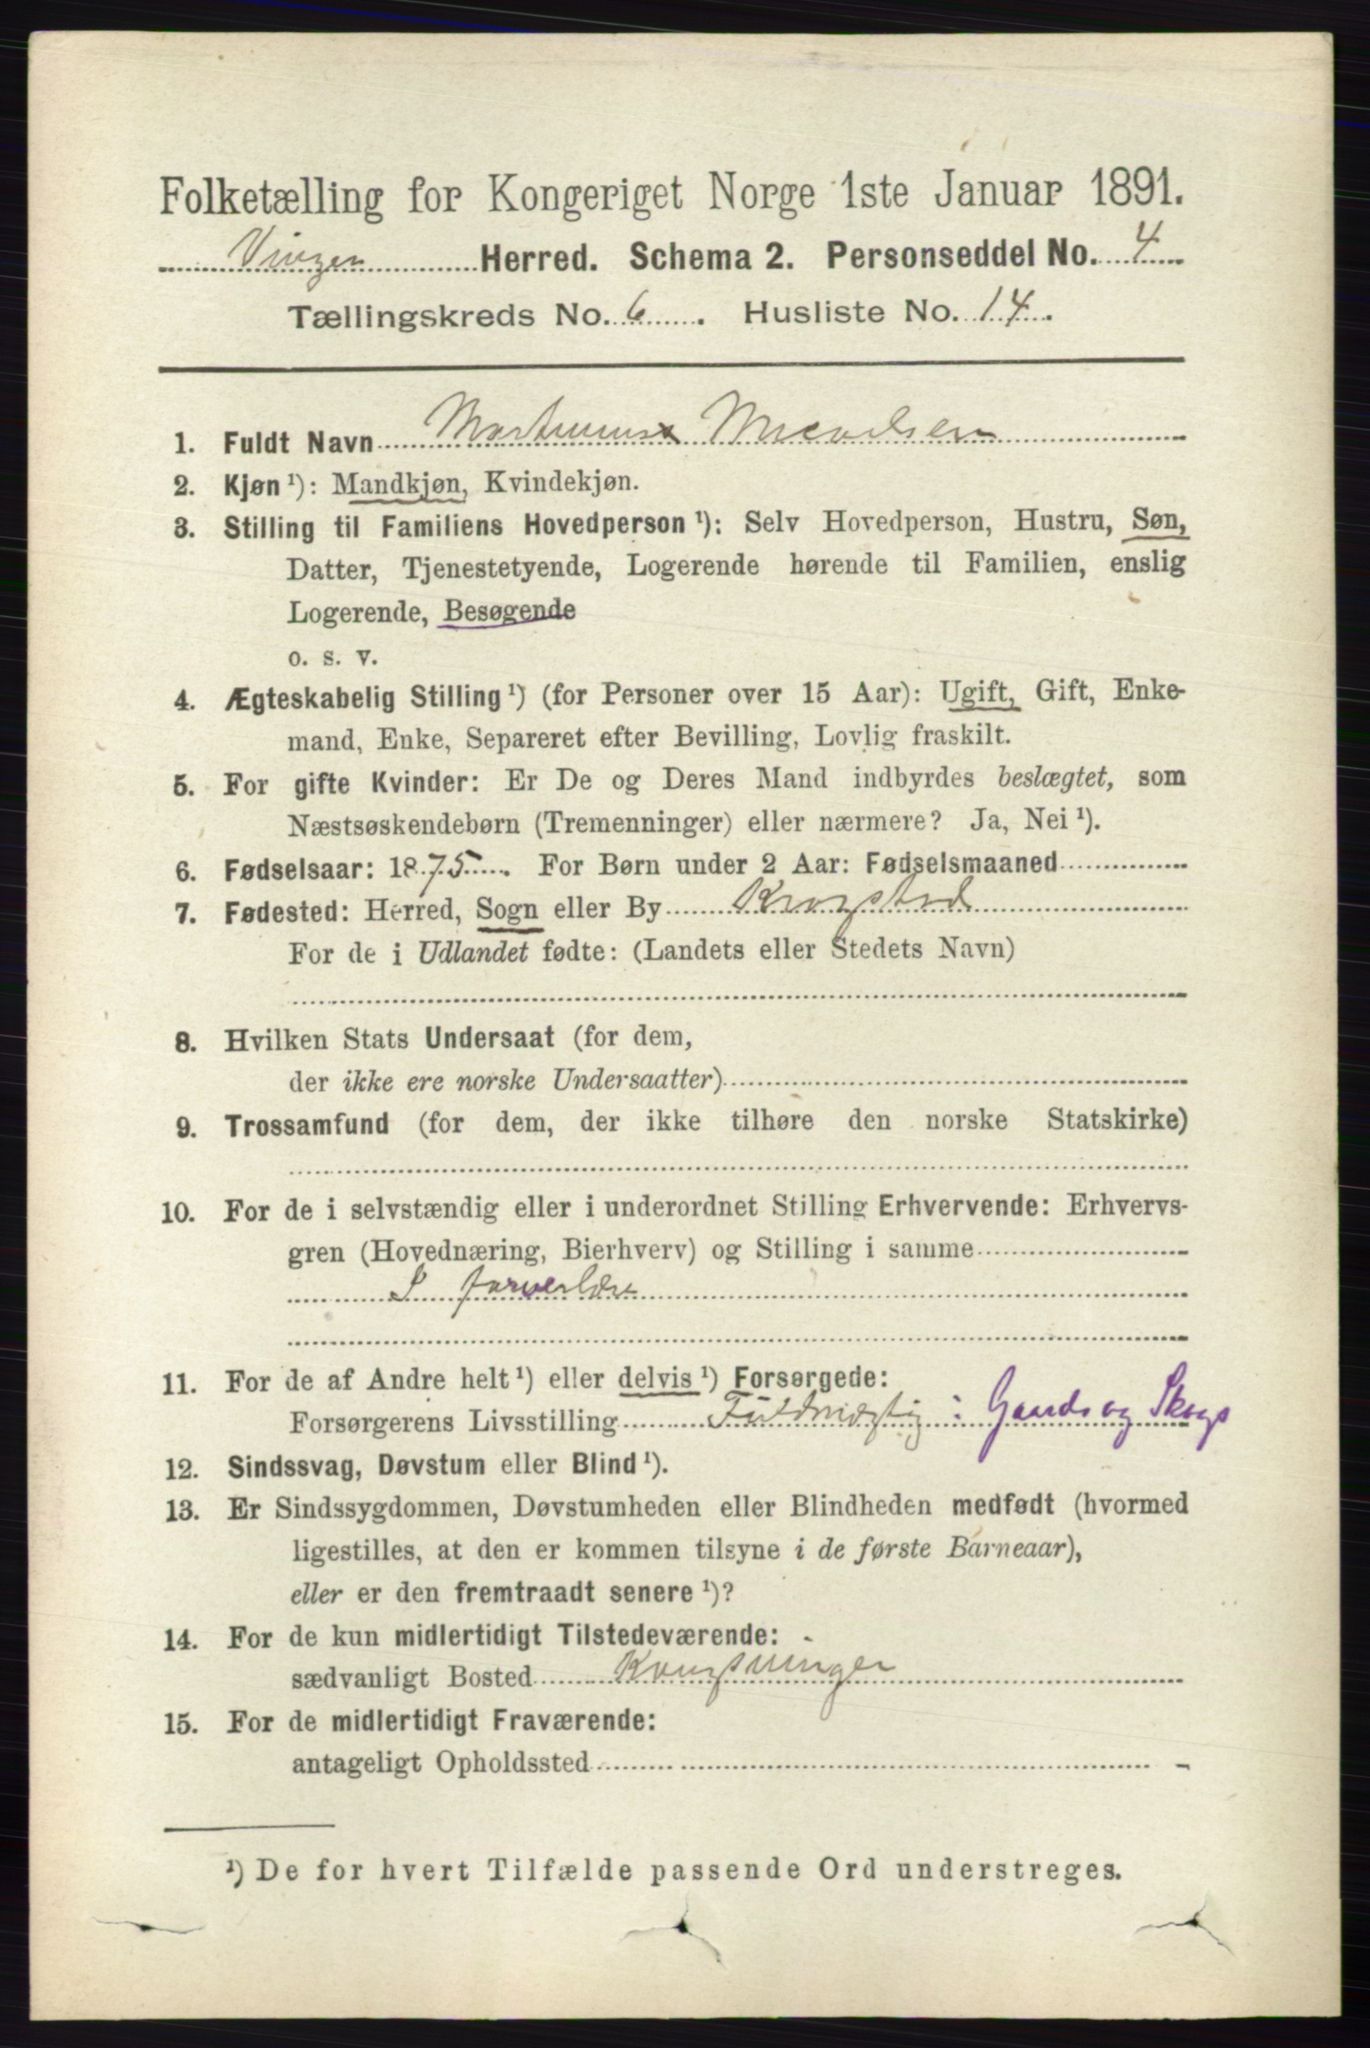 Folketælling for Kongeriget Norge 1ste Januar 1891.
Vinger Herred. Schema 2. Personseddel No. 4
Tællingskreds No. 6. Husliste No. 14.
1. Fuldt Navn
2. Kjøn ¹): Mandkjøn, Kvindekjøn.
3. Stilling til Familiens Hovedperson ¹): Selv Hovedperson, Hustru, Søn,
Datter, Tjenestetyende, Logerende hørende til Familien, enslig
Logerende, Besøgende
o. s. v.
4. Ægteskabelig Stilling ¹) (for Personer over 15 Aar): Ugift, Gift, Enke-
mand, Enke, Separeret efter Bevilling, Lovlig fraskilt.
5. For gifte Kvinder: Er De og Deres Mand indbyrdes beslægtet, som
Næstsøskendebørn (Tremenninger) eller nærmere? Ja, Nei ¹).
6. Fødselsaar: 1875. For Børn under 2 Aar: Fødselsmaaned
7. Fødested: Herred, Sogn eller By Krogstad
For de i Udlandet fødte: (Landets eller Stedets Navn)
8. Hvilken Stats Undersaat (for dem,
der ikke ere norske Undersaatter)
9. Trossamfund (for dem, der ikke tilhøre den norske Statskirke)
10. For de i selvstændig eller i underordnet Stilling Erhvervende: Erhvervs-
gren (Hovednæring, Bierhverv) og Stilling i samme
11. For de af Andre helt ¹) eller delvis ¹) Forsørgede:
Forsørgerens Livsstilling Fuldmægtig i Gaards og Skogs
12. Sindssvag, Døvstum eller Blind ¹).
13. Er Sindssygdommen, Døvstumheden eller Blindheden medfødt (hvormed
ligestilles, at den er kommen tilsyne i de første Barneaar),
eller er den fremtraadt senere ¹)?
14. For de kun midlertidigt Tilstedeværende:
sædvanligt Bosted Kongsvinger
15. For de midlertidigt Fraværende:
antageligt Opholdssted
¹) De for hvert Tilfælde passende Ord understreges.